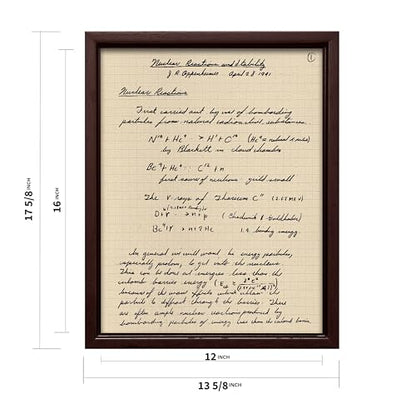 ①
Nuclear Reactions and Stability
J. R. Oppenheimer April 28 1941
Nuclear Reactions
First carried out by use of bombarding
particles from natural radioactive substances.
by Blackett in cloud chamber
first source of neutrons yield small
The γ rays of Thorium C" (2.62 MeV)
D + γ → n + p (Chadwick & Goldhaber)
binding energy
In general we will want low energy particles,
especially protons, to get into the nucleus.
This can be done at energies less than the
barrier energy
because of the wave effects which allow the
particle to diffract through the barrier. There
are often ample nuclear reactions produced by
bombarding particles of energy less than the
17 5/8 INCH
16 INCH
12 INCH
13 5/8 INCH